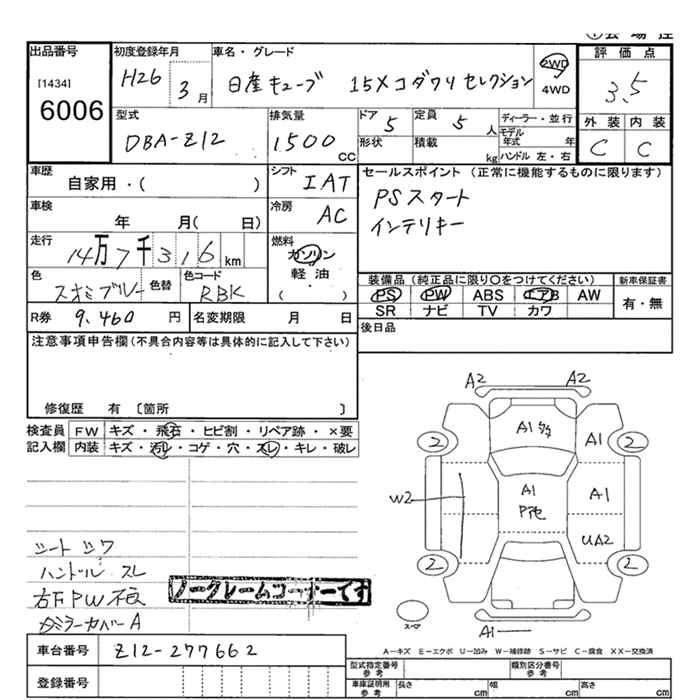 出品番号
[1434]
6006
初度登録年月
H26 3月
車名・グレード
日産キューブ 15Xコダワリセレクション
2WD
4WD
評価点
3.5
外装 内装
C C
型式
DBA-Z12
排気量
1500 CC
ドア 5
定員 5 人
形状
積載 kg
ディーラー・並行
モデル年式 年
ハンドル 左・右
車歴
自家用・( )
シフト
IAT
車検
年 月( 日)
冷房
AC
セールスポイント (正常に機能するものに限ります)
PSスタート
インテリキー
走行
14万7千316 km
燃料
ガソリン
軽油
( ・ )
色
色替
色コード
RBK
装備品 (純正品に限り○をつけてください)
PS PW ABS エアB AW
SR ナビ TV カワ
新車保証書
有・無
R券 9,460 円
名変期限 月 日
後日品
注意事項申告欄(不具合内容等は具体的に記入して下さい)
修復歴 有 〔箇所 〕
検査員
記入欄
FW キズ・飛石・ヒビ割・リペア跡・×要
内装 キズ・汚レ・コゲ・穴・スレ・キレ・破レ
シート シワ
ハンドル スレ
ミラーカバーA
ノークレームコーナーです
A2 A2
A1
2 A1 2
W2 A1 A1
UA2
2 2
スペア
A1
A-キズ E-エクボ U-凹み W-補修跡 S-サビ C-腐食 XX-交換済
車台番号 Z12-277662
登録番号
型式指定番号
参考
類別区分番号
参考
車庫証明用
参考
長さ cm 幅 cm 高さ cm